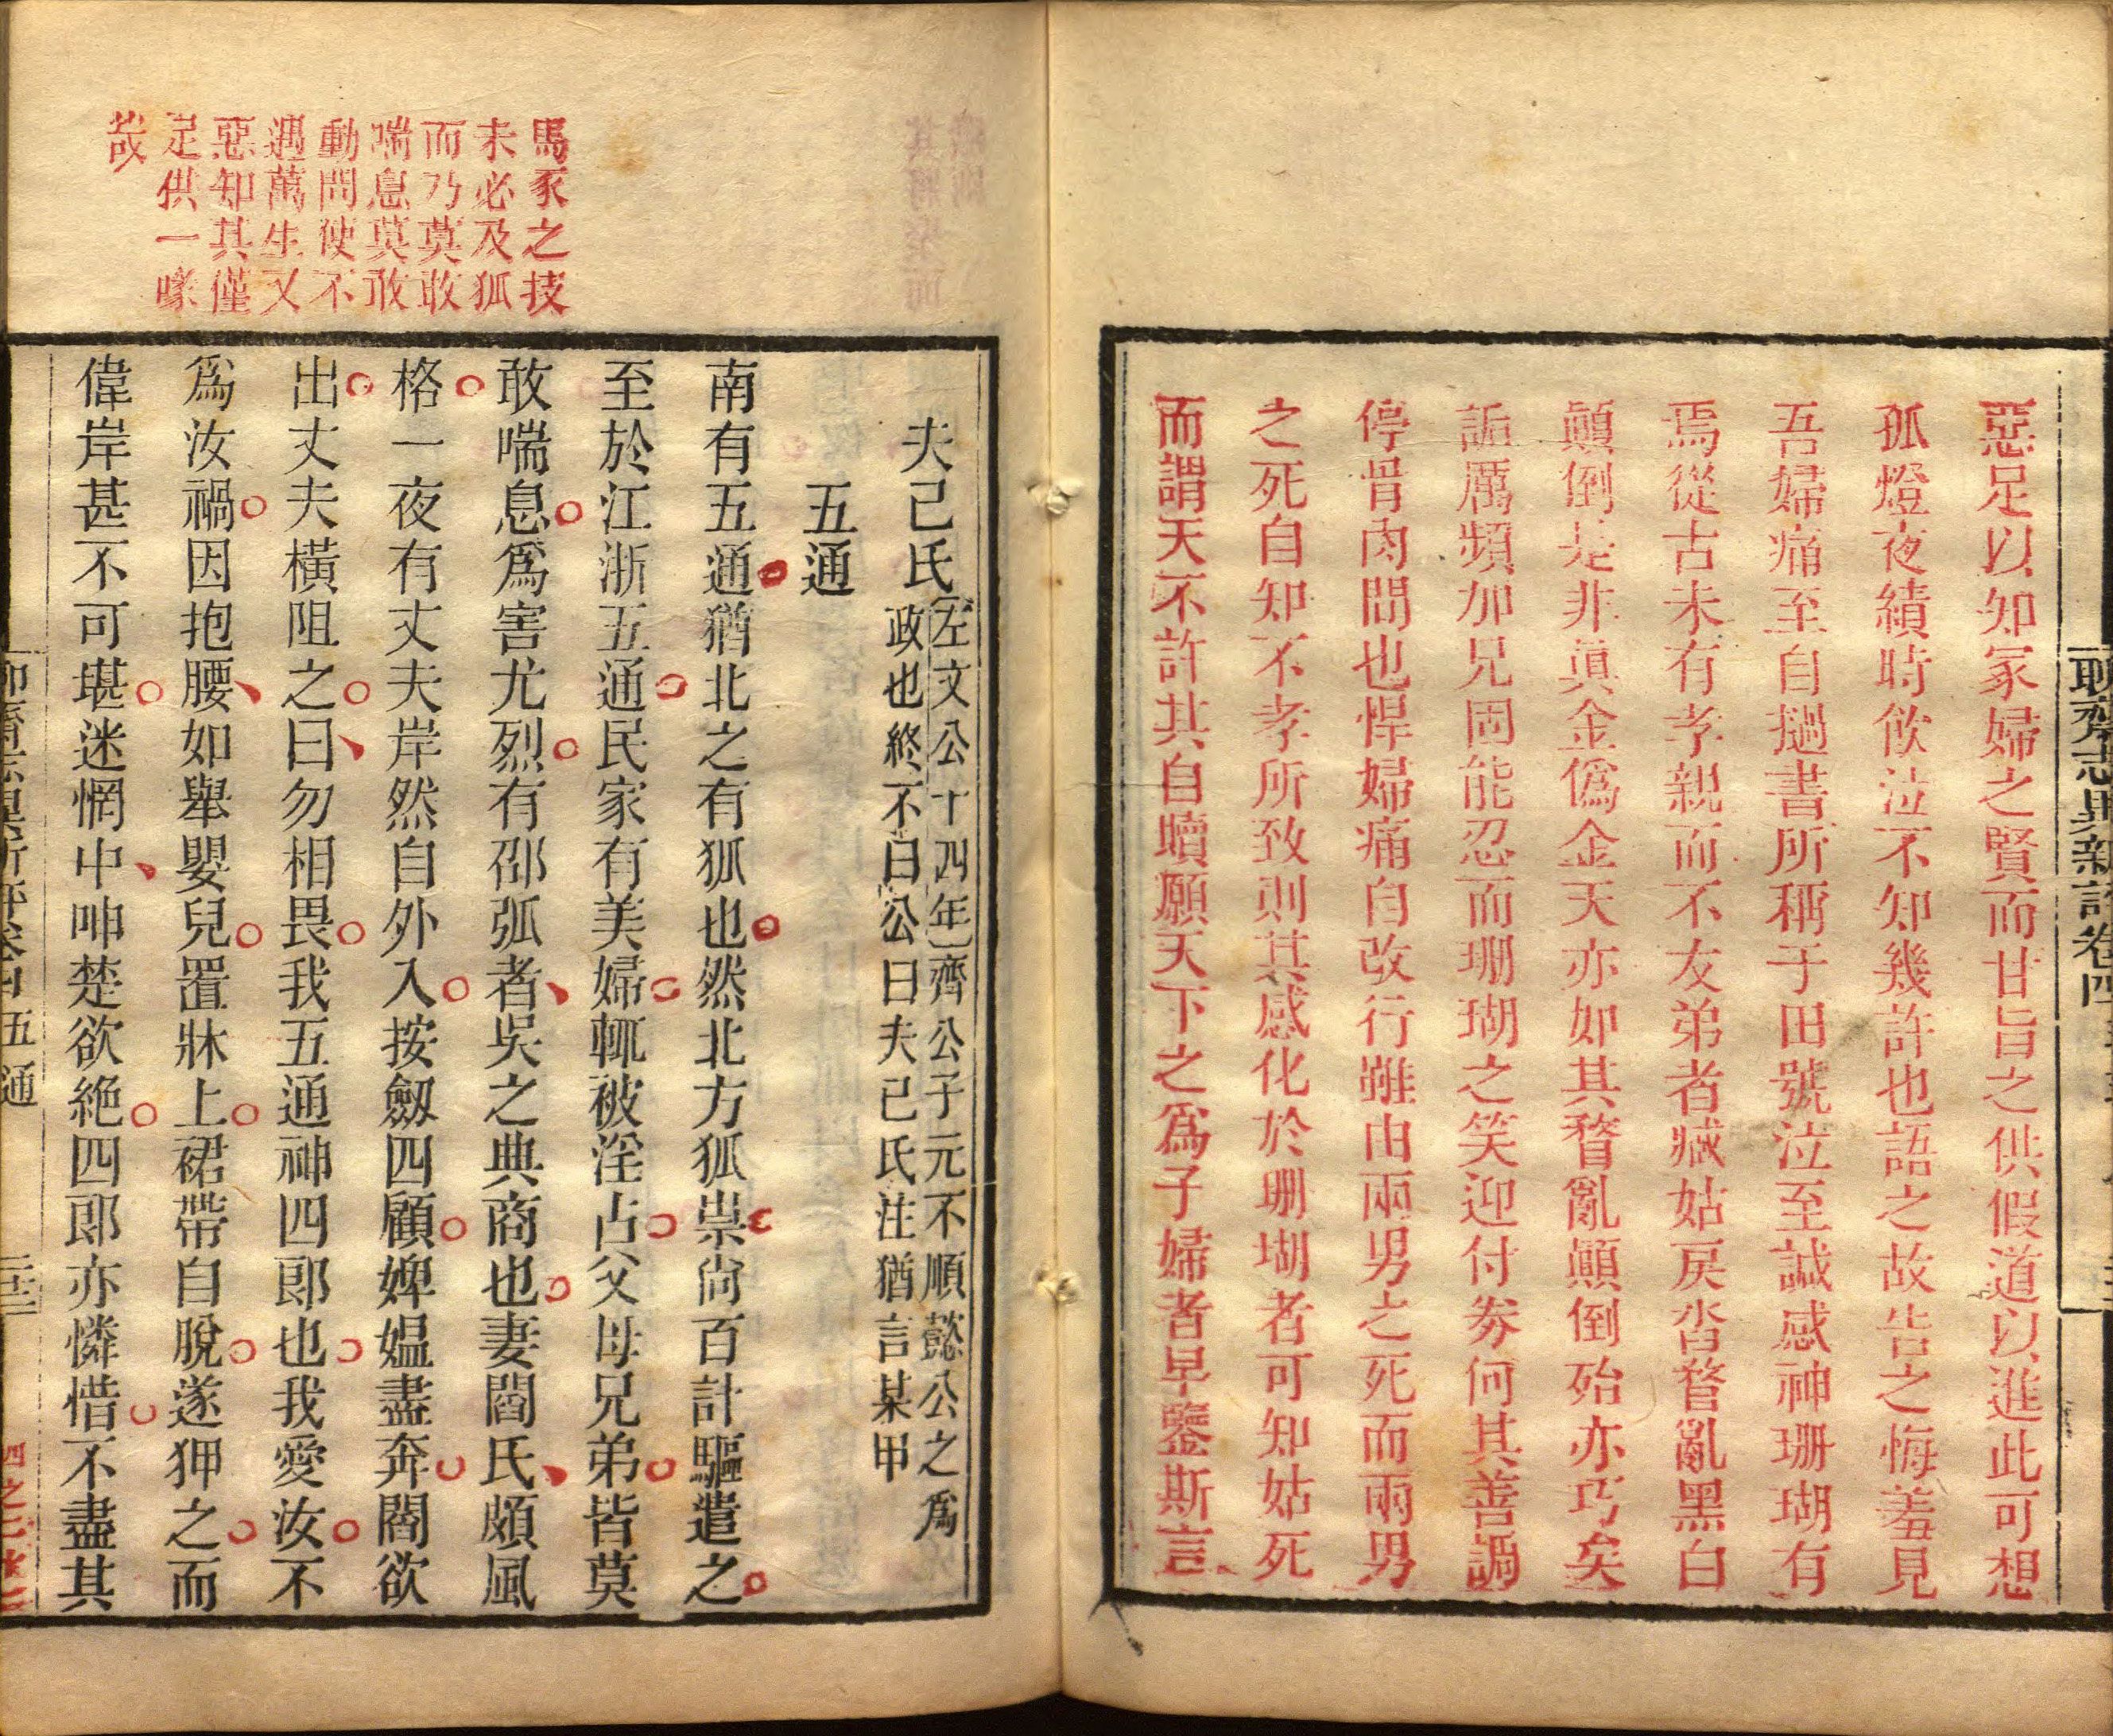 聊齋志異新評卷四
惡足以知冢婦之賢而甘旨之供假道以進此可想
孤燈夜績時飲泣不知幾許也語之故告之悔羞見
吾婦痛至自撾書所稱于田號泣至諴感神珊瑚有
焉從古未有孝親而不友弟者臧姑戾沓瞀亂黑白
顛倒是非真金僞金天亦如其瞀亂顛倒殆亦巧矣
詬厲頻加兄固能忍而珊瑚之笑迎付券何其善調
停骨肉間也悍婦痛自改行雖由兩男之死而兩男
之死自知不孝所致則其感化於珊瑚者可知姑死
而謂天不許其自贖願天下之爲子婦者早鑒斯言
夫己氏
左文公十四年齊公子元不順懿公之爲
政也終不曰公曰夫己氏注猶言某甲
五通
南有五通猶北之有狐也然北方狐祟尙百計驅遣之
至於江浙五通民家有美婦輒被淫占父母兄弟皆莫
敢喘息爲害尤烈有邵弧者吳之典商也妻閻氏頗風
格一夜有丈夫岸然自外入按劒四顧婢媼盡奔閻欲
出丈夫橫阻之曰勿相畏我五通神四郎也我愛汝不
爲汝禍因抱腰如舉嬰兒置牀上裙帶自脫遂狎之而
偉岸甚不可堪迷惘中呻楚欲絶四郎亦憐惜不盡其
馬豕之技
未必及狐
而乃莫敢
喘息莫敢
動問使不
遇萬生又
惡知其僅
足供一啄
哉
聊齋志異新評卷四 五通